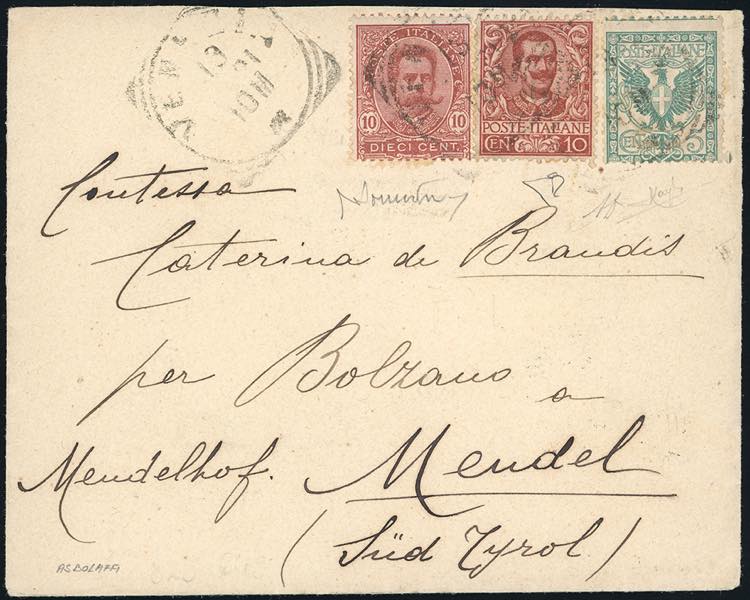 POSTE ITALIANE
10 10
DIECI CENT.
POSTE ITALIANE
CENT. 10
POSTE ITALIANE
Contessa
Caterina de Brandis
per Bolzano a
Mendelhof. Mendel
(Süd Tyrol)
ASBOLAFFI